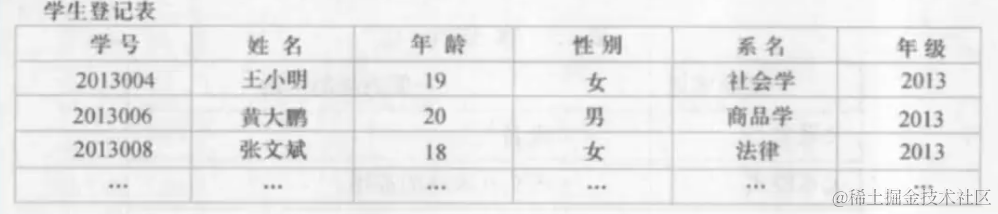 学生登记表
学号 姓名 年龄 性别 系名 年级
2013004 王小明 19 女 社会学 2013
2013006 黄大鹏 20 男 商品学 2013
2013008 张文斌 18 女 法律 2013
… … … … … …
@稀土掘金技术社区